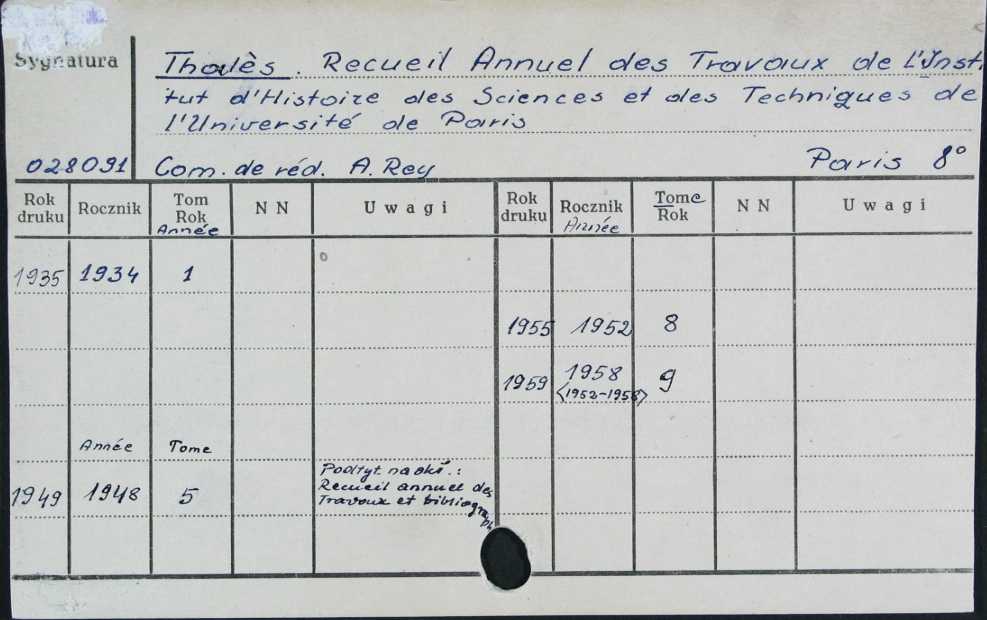 Sygnatura
Thalès. Recueil Annuel des Travaux de l'Insti
tut d'Histoire des Sciences et des Techniques de
l'Université de Paris
028091 Com. de réd. A. Rey Paris 8°
Rok druku Rocznik Tom Rok Année NN Uwagi Rok druku Rocznik Année Tome Rok NN Uwagi
1935 1934 1
1955 1952 8
1959 1958 9
<1952-1958>
Année Tome
1949 1948 5 Podtyt. na okł.:
Recueil annuel des
Travaux et bibliograph